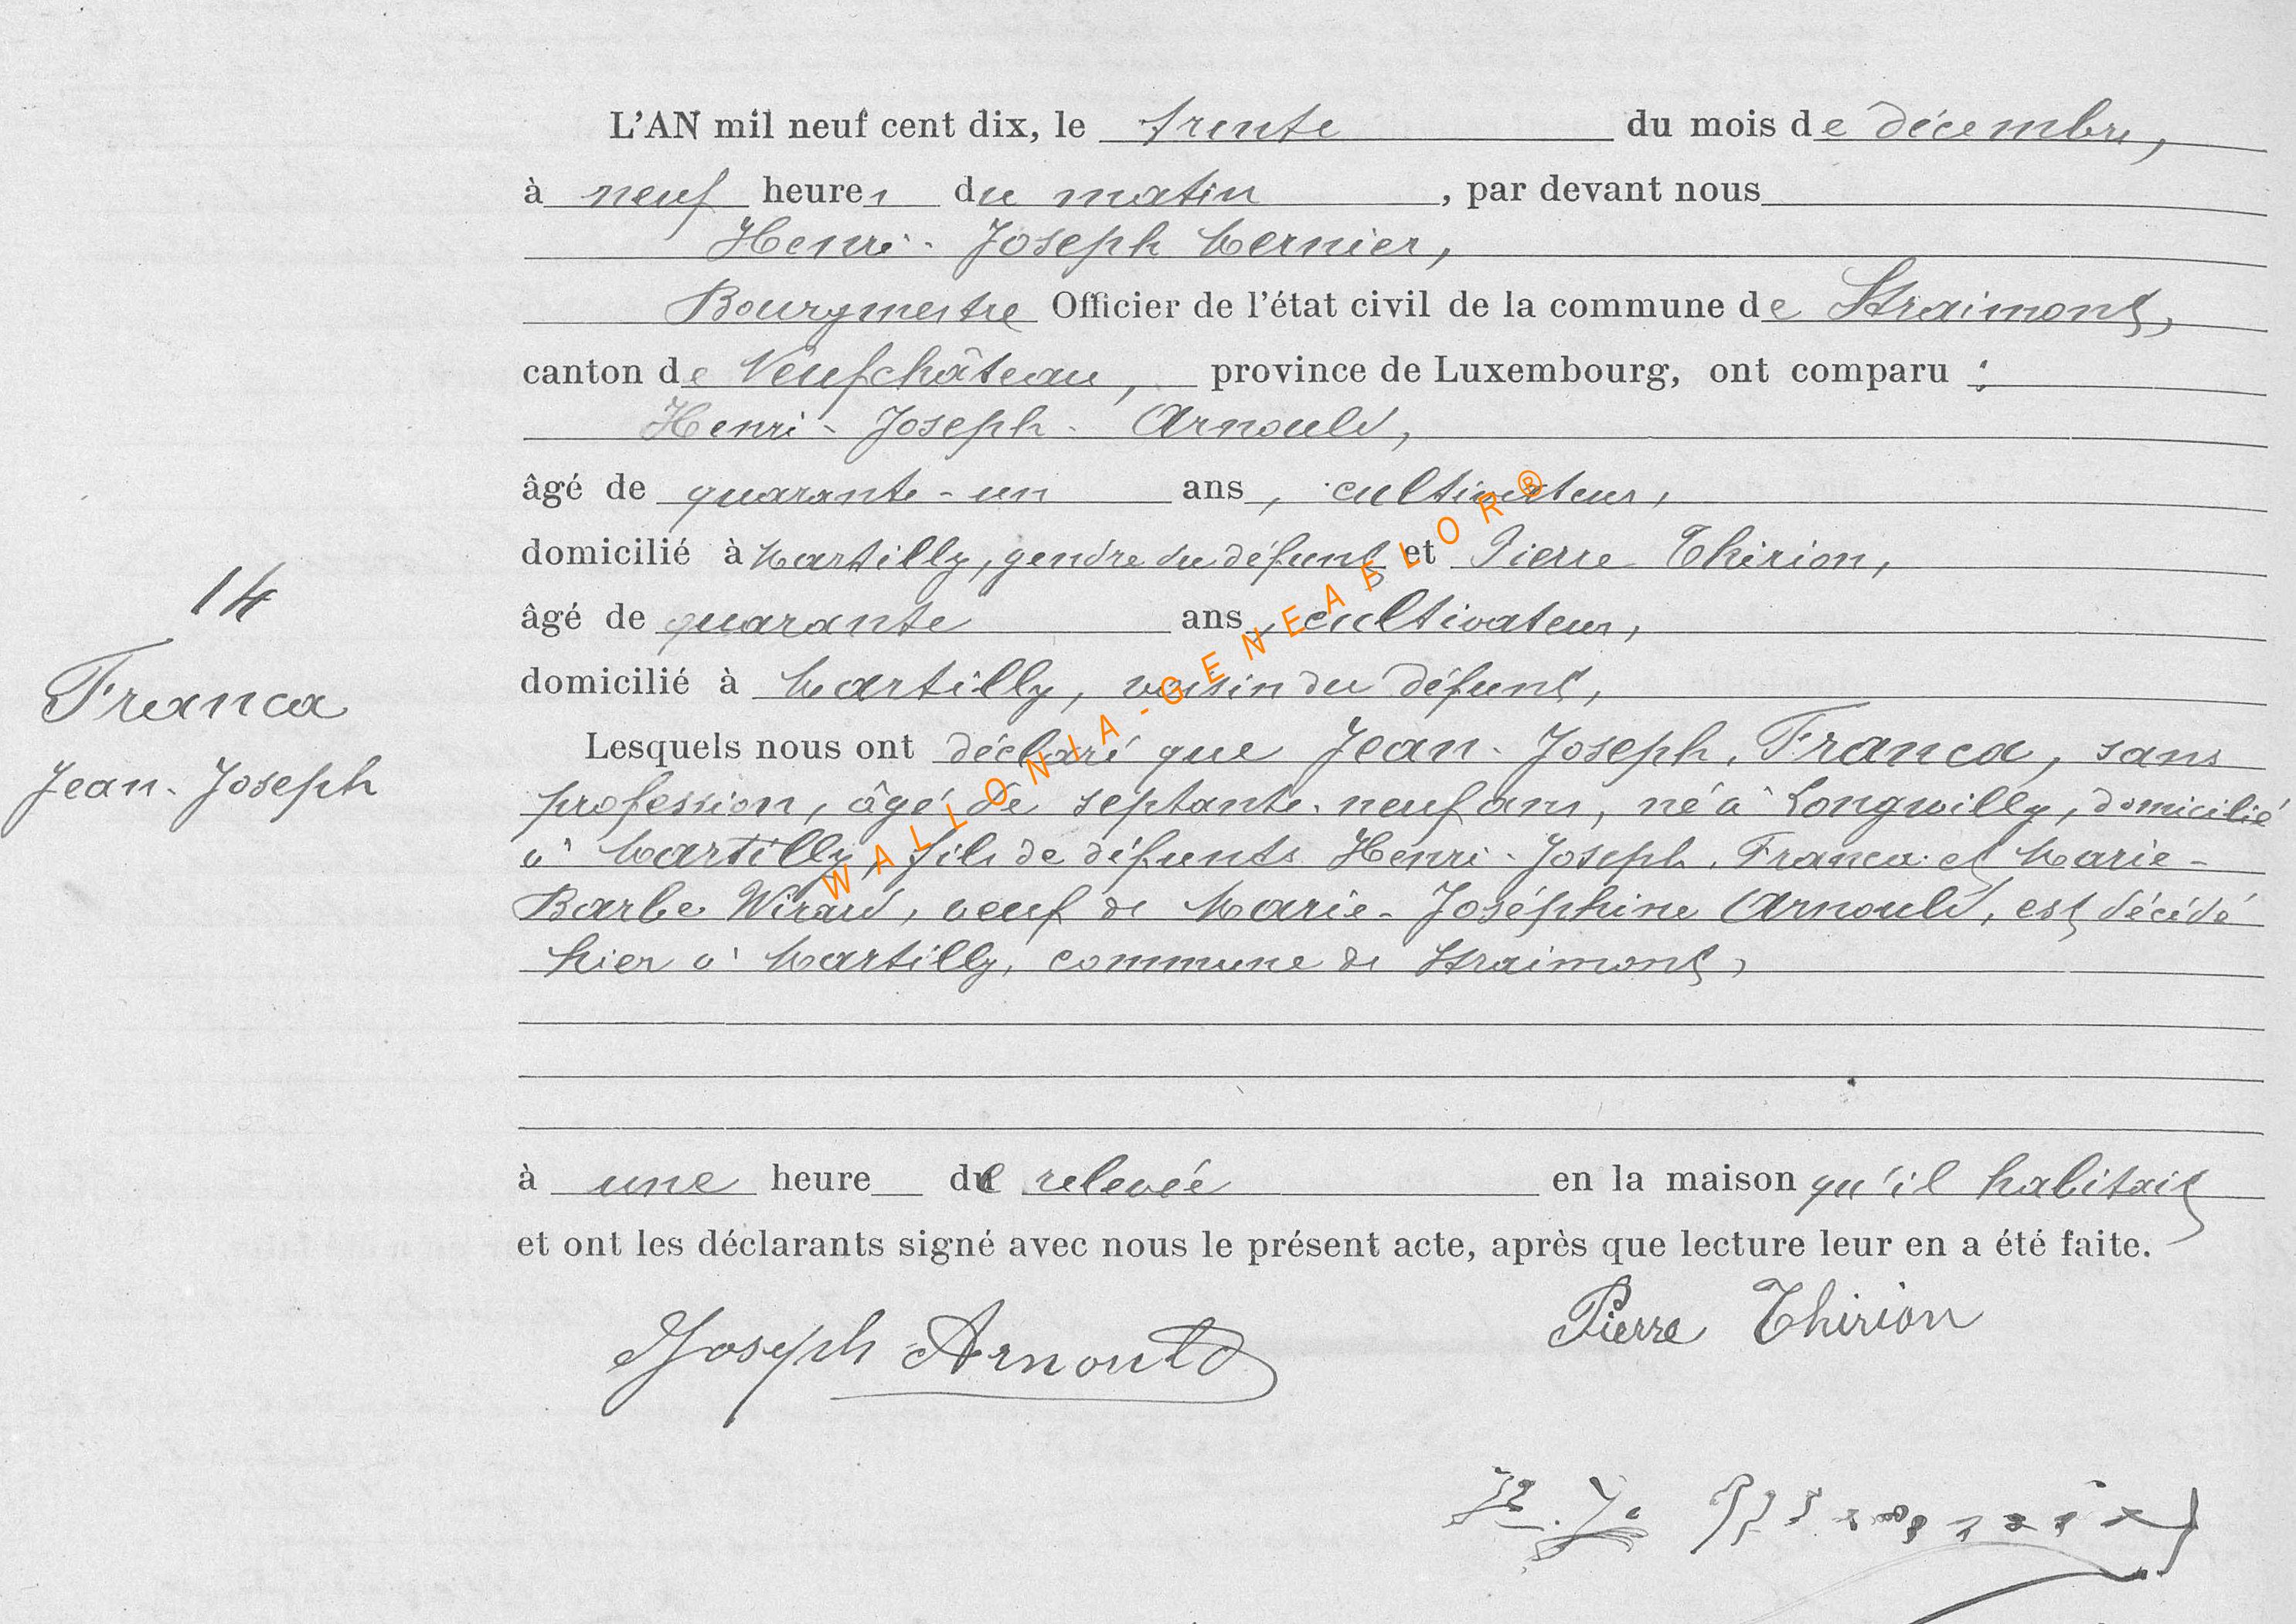 L'AN mil neuf cent dix, le trente du mois de décembre,
à neuf heures du matin, par devant nous
Henri-Joseph Mernier,
Bourgmestre Officier de l'état civil de la commune de Straimont,
canton de Neufchâteau, province de Luxembourg, ont comparu :
Henri-Joseph-Arnould,
âgé de quarante-un ans, cultivateur,
domicilié à Martilly, gendre du défunt et Pierre Thirion,
âgé de quarante ans, cultivateur,
domicilié à Martilly, voisin du défunt,
14
Franca
Jean-Joseph
Lesquels nous ont déclaré que Jean-Joseph, Franca, sans
profession, âgé de septante-neuf ans, né à Longwilly, domicilié
à Martilly, fils de défunts Henri-Joseph, Franca et Marie-
Barbe Wirard, veuf de Marie-Joséphine Arnould, est décédé
hier à Martilly, commune de Straimont,
à une heure de relevée en la maison qu'il habitait
et ont les déclarants signé avec nous le présent acte, après que lecture leur en a été faite.
Joseph Arnould
Pierre Thirion
WALLONIA-GENEALOR®